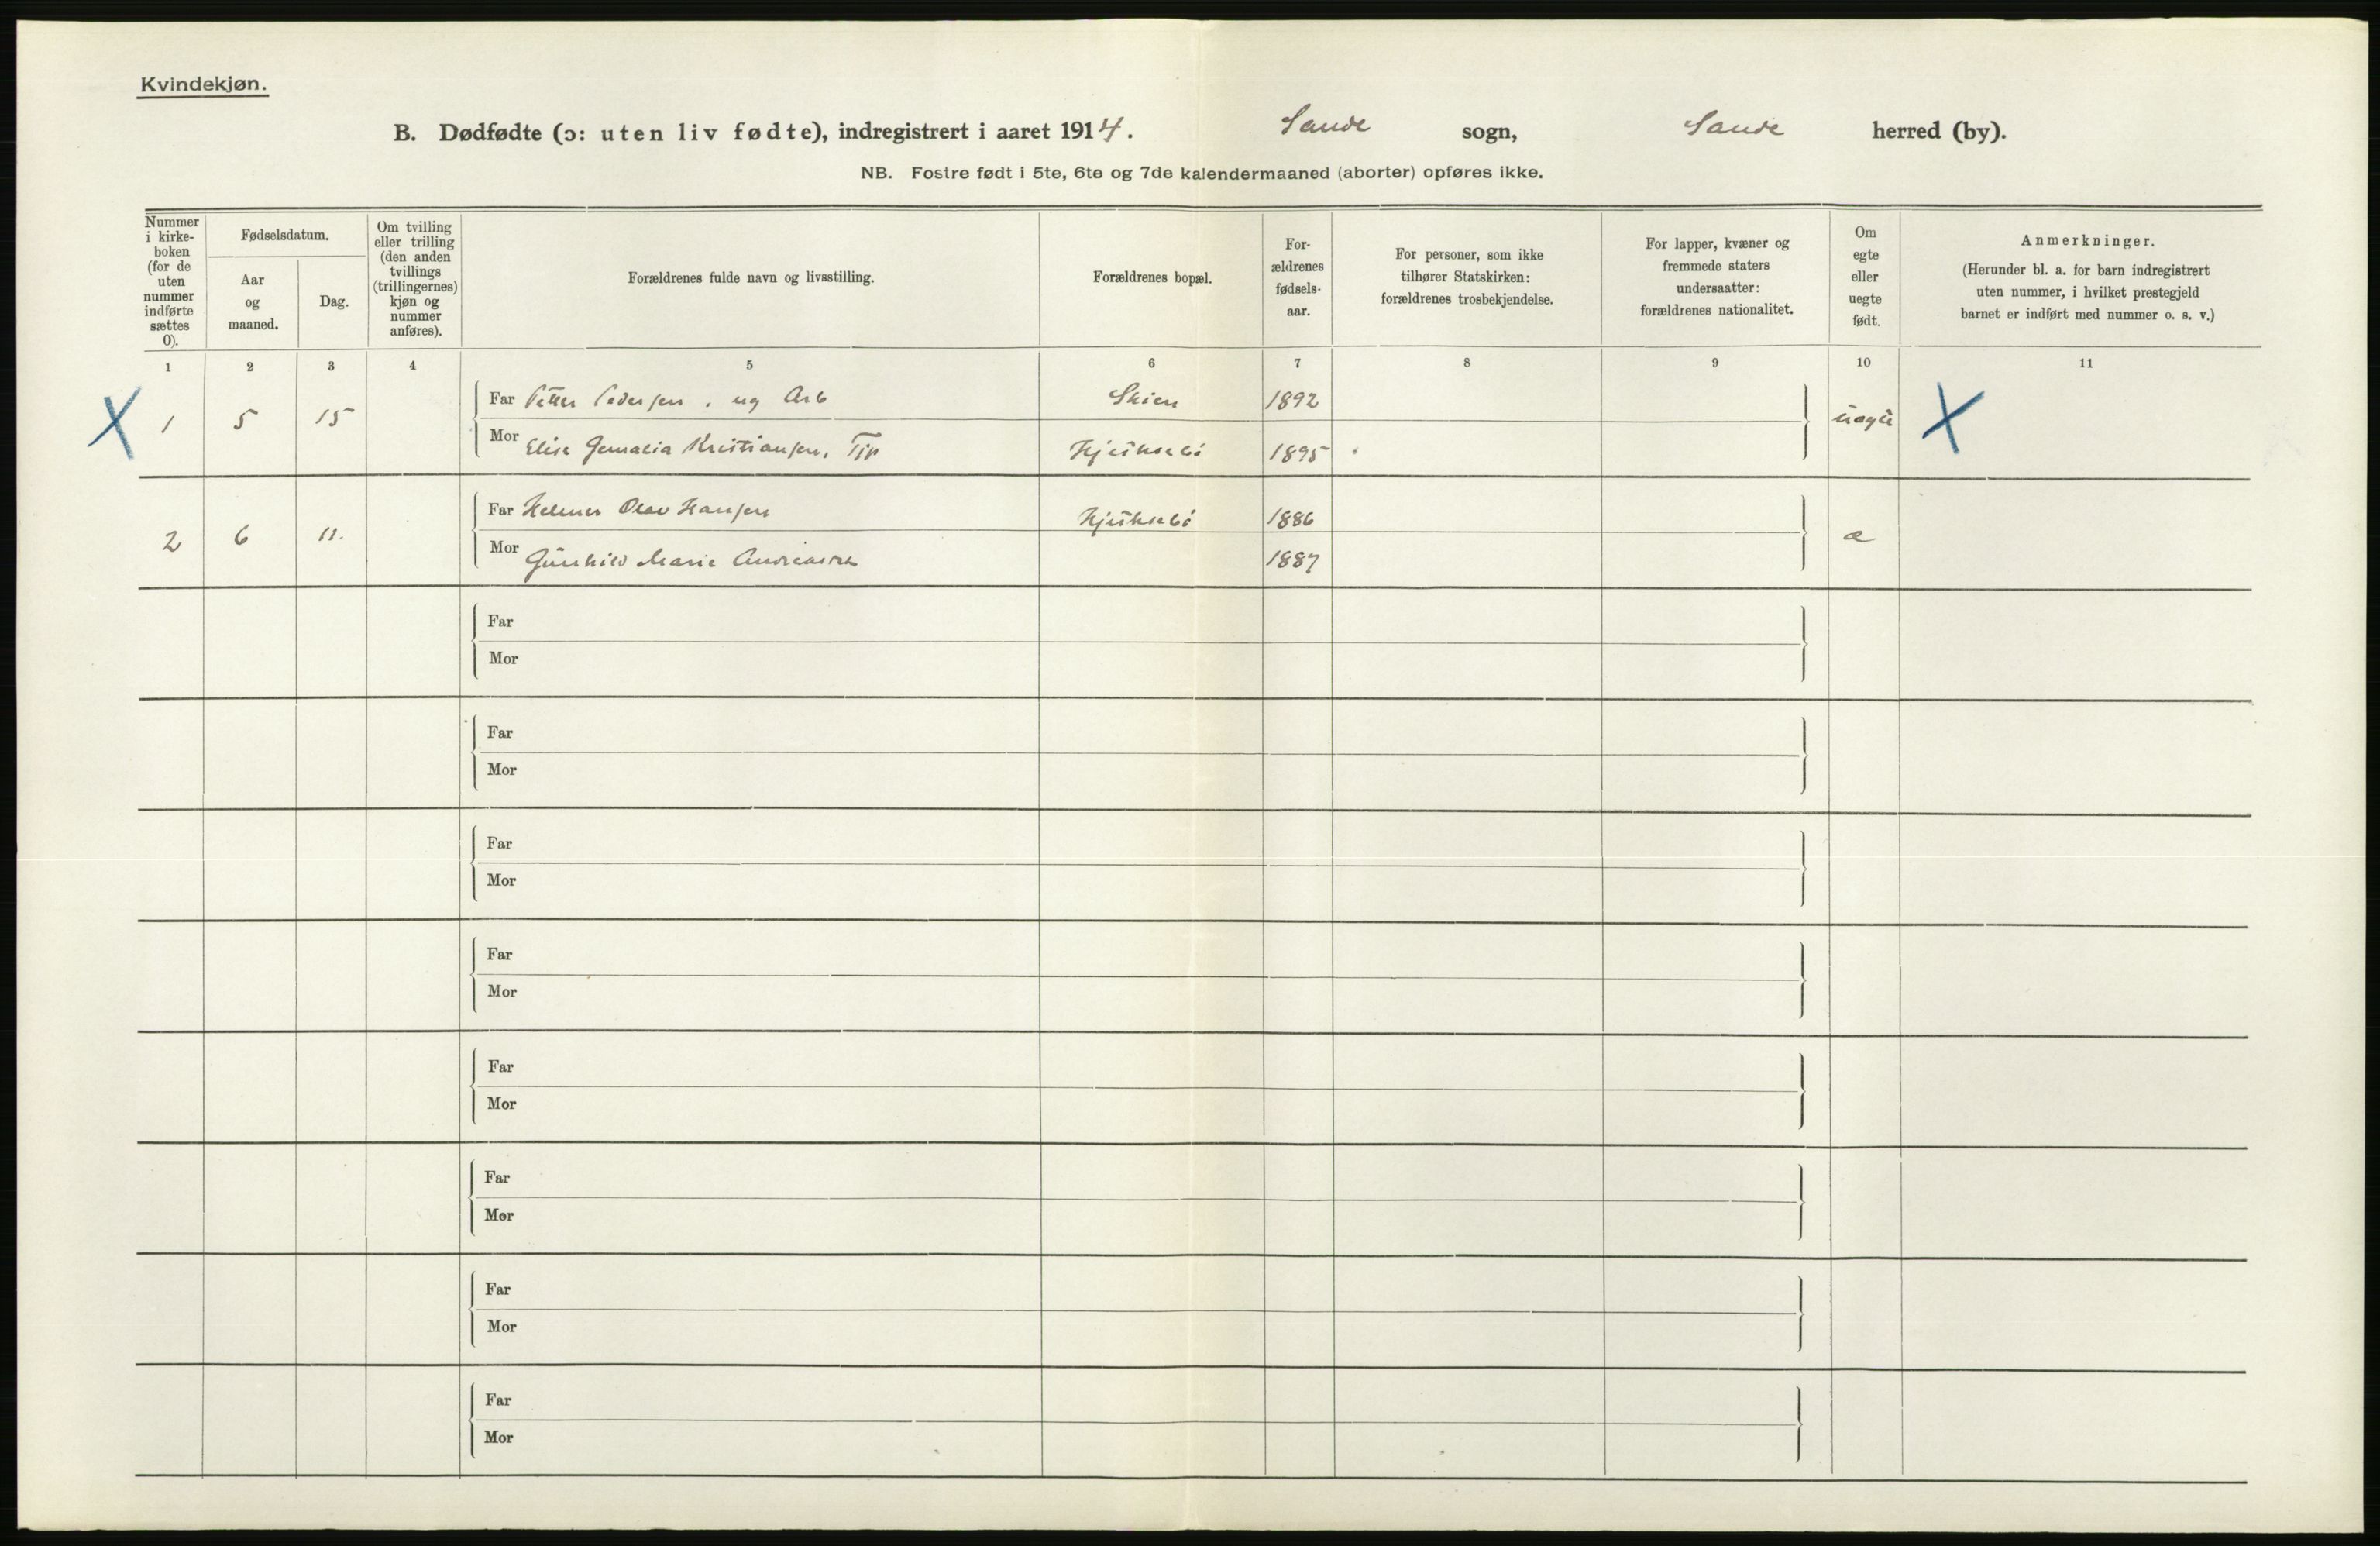 Kvindekjøn.
B. Dødfødte (ɔ: uten liv fødte), indregistrert i aaret 1914. Sande sogn, Sande herred (by).
NB. Fostre født i 5te, 6te og 7de kalendermaaned (aborter) opføres ikke.
Nummer i kirke- boken (for de uten nummer indførte sættes 0).
Fødselsdatum.
Aar og maaned.
Dag.
Om tvilling eller trilling (den anden tvillings (trillingernes) kjøn og nummer anføres).
Forældrenes fulde navn og livsstilling.
Forældrenes bopæl.
For- ældrenes fødsels- aar.
For personer, som ikke tilhører Statskirken: forældrenes trosbekjendelse.
For lapper, kvæner og fremmede staters undersaatter: forældrenes nationalitet.
Om egte eller uegte født.
Anmerkninger.
(Herunder bl. a. for barn indregistrert uten nummer, i hvilket prestegjeld barnet er indført med nummer o. s. v.)
1 2 3 4 5 6 7 8 9 10 11
X 1 5 15 Far Petter Pedersen, ug Arb Skien 1892 uegte X
Mor Elise Kristiansen, Tjp 1895
2 6 11. Far Helmer Olav Hansen 1886 æ
Mor Gunhild Marie Andreasen 1887
Far
Mor
Far
Mor
Far
Mor
Far
Mor
Far
Mor
Far
Mor
Far
Mor
Far
Mor